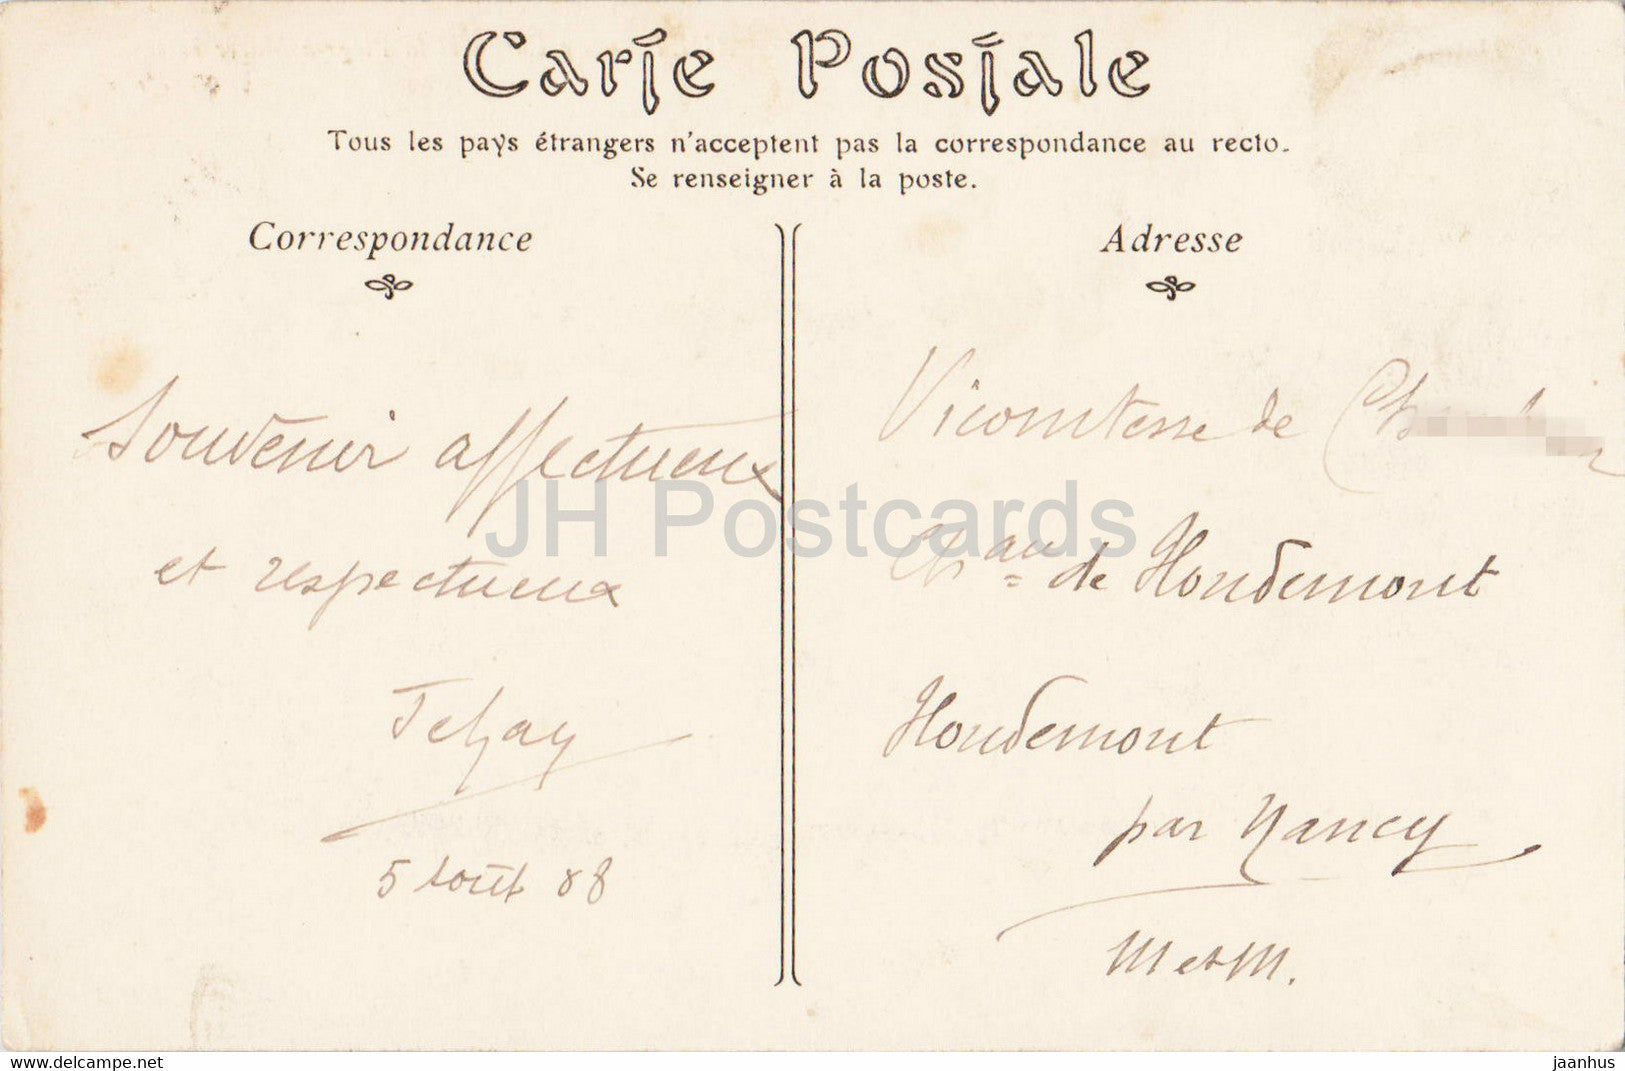 Carte Postale
Tous les pays étrangers n'acceptent pas la correspondance au recto.
Se renseigner à la poste.
Correspondance
Souvenir affectueux
et respectueux
5 Août 08
Adresse
Vicomtesse de
Chau de Houdemont
Houdemont
par Nancy
M et M.
JH Postcards
www.delcampe.net
jaanhus